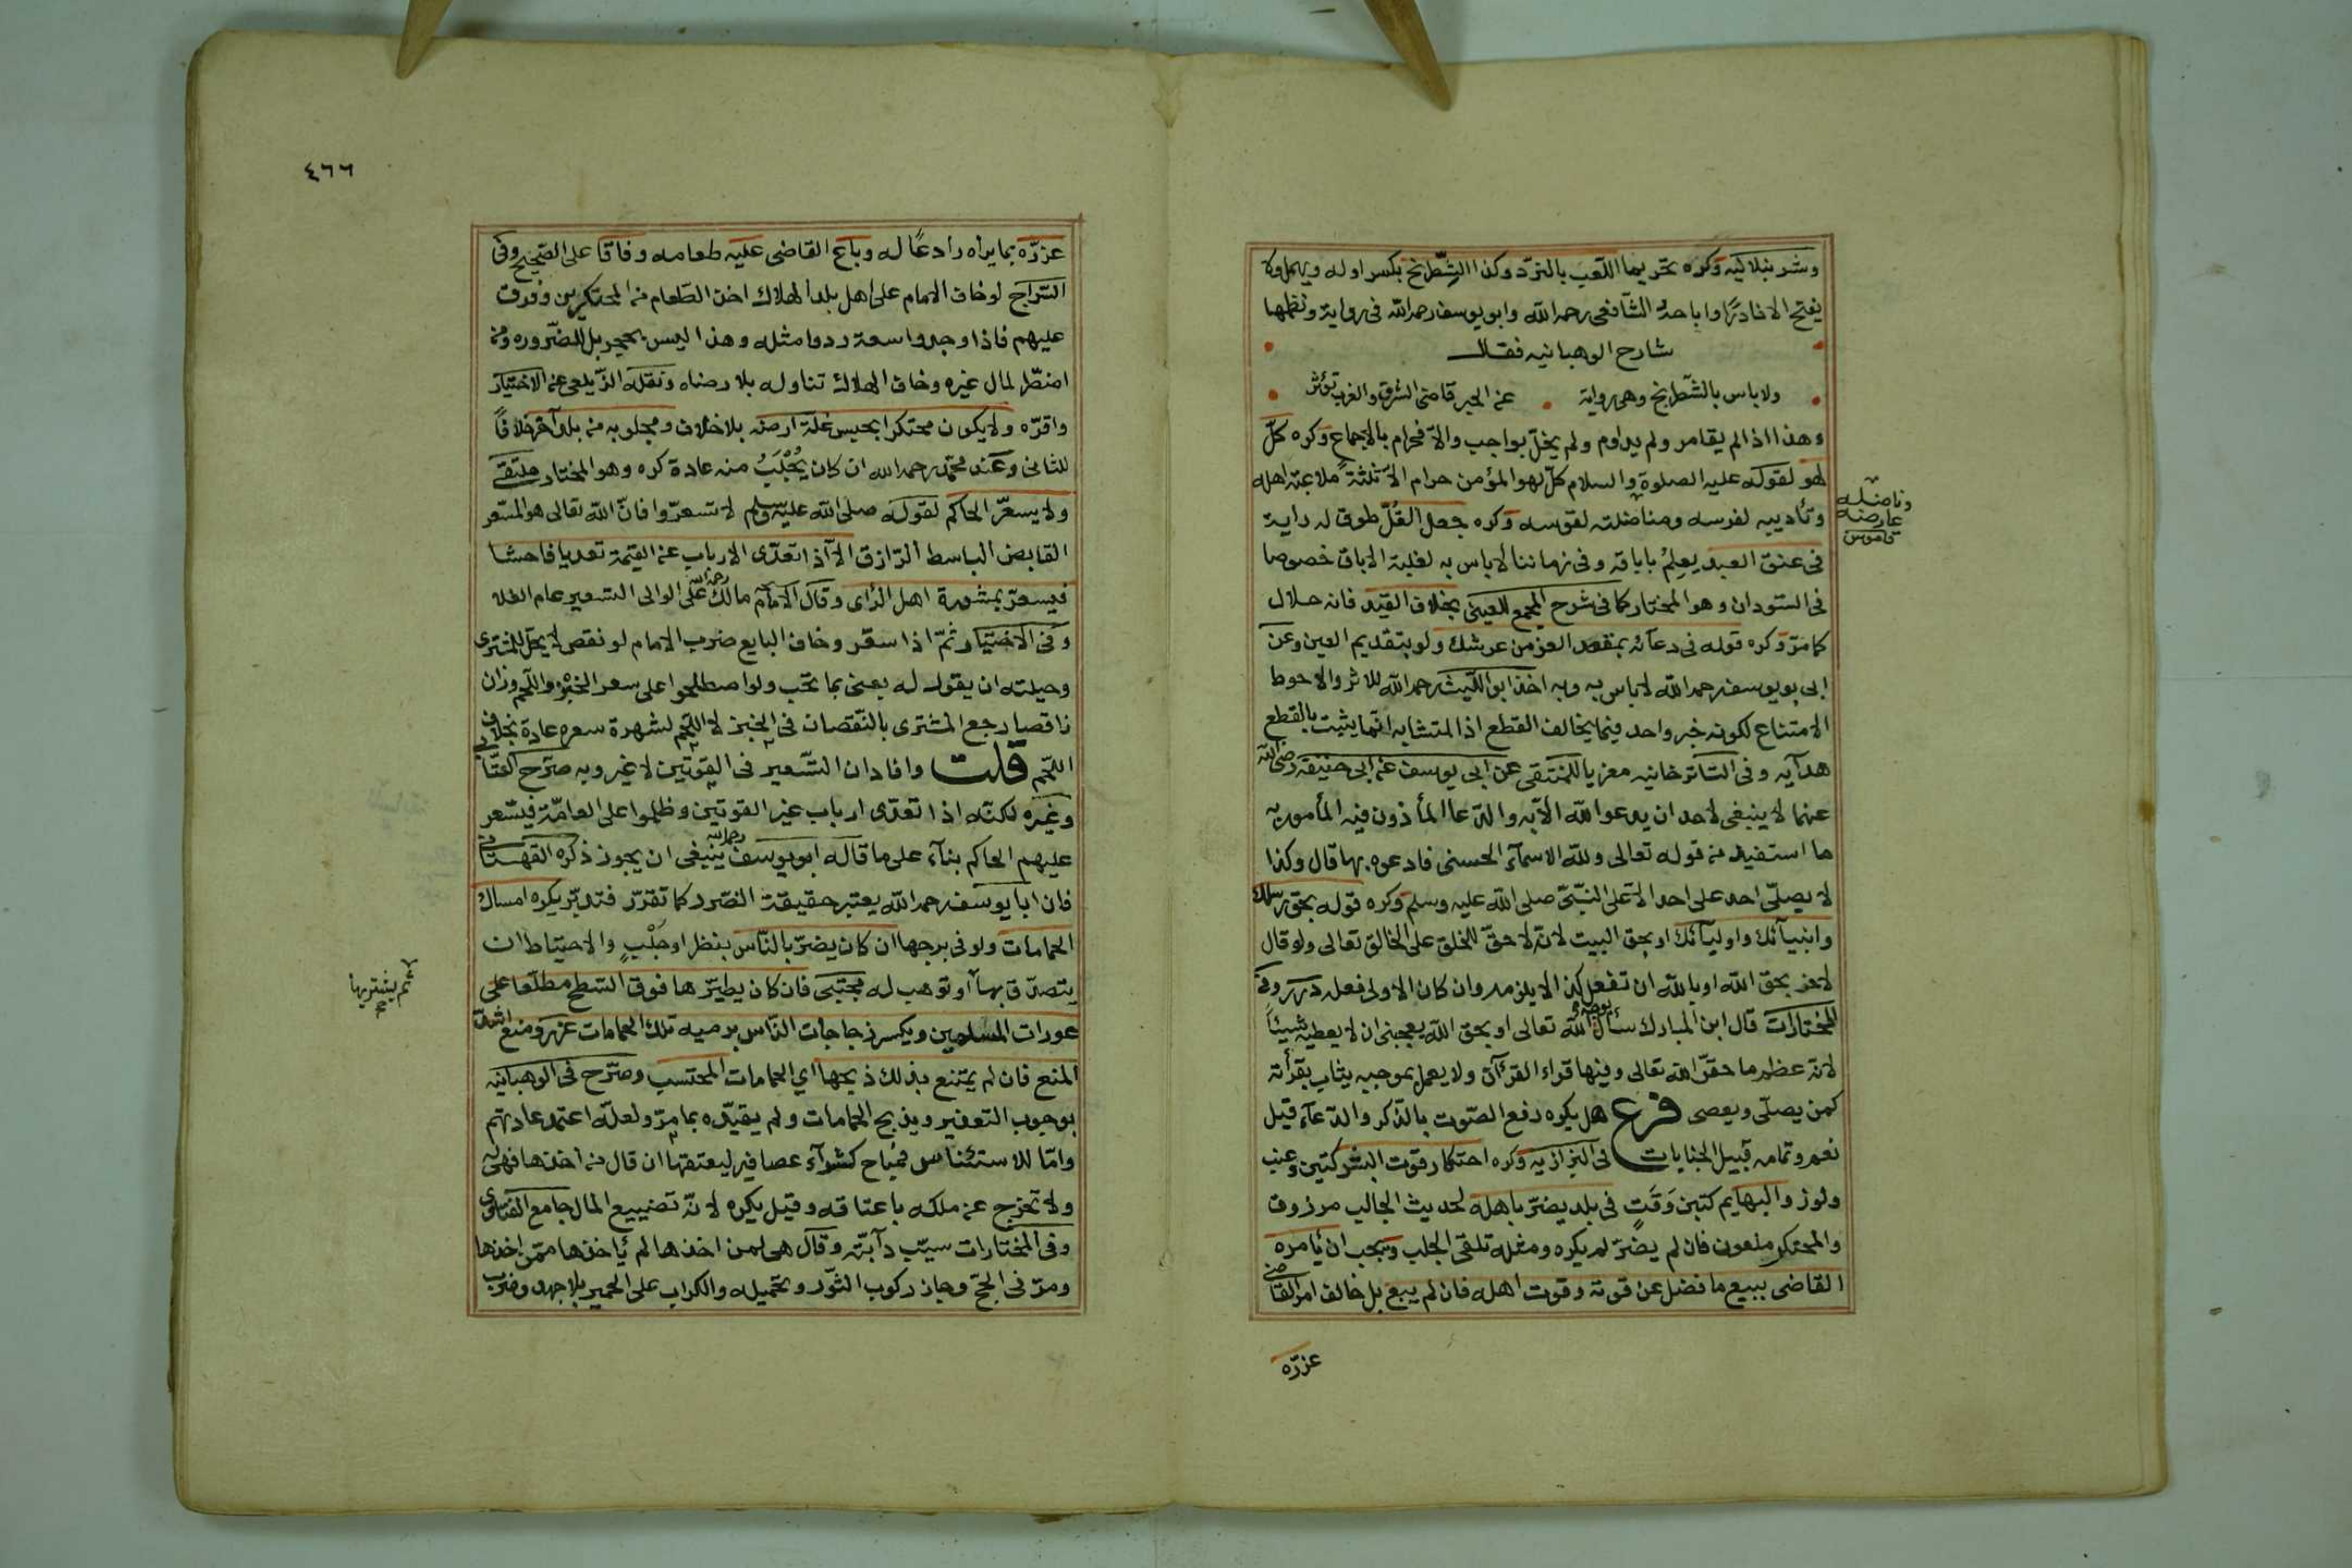 وشرنبلالية وكره تحريما اللعب بالنرد وكذا الشطرنج بكسر اوله ويهمل ولا
يفتح الا نادرًا واباحه الشافعى رحمه الله وابو يوسف رحمه الله فى رواية ونظمها
شارح الوهبانيه فقال
ولا باس بالشطرنج وهى رواية عن الحبر قاضى الشرق والغرب تؤثر
وهذا اذا لم يقامر ولم يداوم ولم يخلّ بواجب والّا فحرام بالاجماع وكره كلّ
لهو لقوله عليه الصلوة والسلام كلّ لهو المؤمن حرام الّا ثلثة ملاعبته اهله
وتأديبه لفرسه ومناضلته لقوسه وكره جعل الغُلّ طوق له راية
فى عنق العبد يعلم باباقه وفى زماننا لا باس به لغلبة الاباق خصوصا
فى السّودان وهو المختار كما فى شرح المجمع للعينى بخلاف القيد فانه حلال
كما مرّ وكره قوله فى دعائه بمقعد العز من عرشك ولو بتقديم العين وعن
ابى يوسف رحمه الله لا باس به وبه اخذ ابو الليث رحمه الله للاثر والاحوط
الامتناع لكونه خبر واحد فيما يخالف القطع اذ المتشابه انّما يثبت بالقطع
هدايه وفى التاترخانيه معزيا للمنتقى عن ابى يوسف عن ابى حنيفة رضى الله
عنهما لا ينبغى لاحد ان يدعو الله الّا به والدعا المأذون فيه المأمور به
ما استفيد من قوله تعالى ولله الاسمآء الحسنى فادعوه بها قال وكذا
لا يصلّى احد على احد الّا على النبىّ صلى الله عليه وسلم وكره قوله بحق رسلك
وانبيآئك واوليآئك او بحق البيت لانّه لا حقّ للخلق على الخالق تعالى ولو قال
لاخر بحق الله او بالله ان تفعل كذا لا يلزمه وان كان الاولى فعله درر وفى
المختارات قال ابن المبارك سأل بوجه الله تعالى او بحق الله يعجبنى ان لا يعطيه شيئاً
لانه عظم ما حقّر الله تعالى وفيها قراء القرءآن ولا يعمل بموجبه يثاب بقرأته
كمن يصلّى ويعصى فرع هل يكره رفع الصّوت بالذكر والدعآء قيل
نعم وتمامه قبيل الجنايات فى البزازيه وكره احتكار قوت البشر كتين وعنب
ولوز والبهايم كتبن وقتٍ فى بلد يضرّ باهله لحديث الجالب مرزوق
والمحتكر ملعون فان لم يضرّ لم يكره ومثله تلقى الجلب ويجب ان يأمره
القاضى ببيع ما فضل عن قوته وقوت اهله فان لم يبع بل خالف امر القاضى
عزره
وناضله
عارضه
قاموس
٤٦٦
عزرّه بما يراه رادعًا له وباع القاضى عليه طعامه وفاقا على الصّحيح وفى
السّراج لو خاف الامام على اهل بلد الهلاك اخذ الطعام من المحتكرين وفرق
عليهم فاذا وجدوا سعة ردوا مثله وهذا ليس بحجر بل للضّروره ومن
اضطرّ لمال غيره وخاف الهلاك تناوله بلا رضاه ونقله الزّيلعى عن الاختيار
واقرّه ولا يكون محتكرا بحبس غلّة ارضه بلا خلاف ومجلوبه من بلد آخر خلافًا
للثانى وعند محمّد رحمه الله ان كان يُجْلَبُ منه عادة كره وهو المختار ملتقى
ولا يسعرّ الحاكم لقوله صلى الله عليه وسلم لا تسعرّوا فانّ الله تعالى هو المسعر
القابض الباسط الرّازق الّا اذا تعدّى الارباب عن القيمة تعديا فاحشا
فيسعرّ بمشورة اهل الرّاى وقال الامام مالك رحمه الله على الوالى التسعير عام الغلا
وفى الاختيار ثمّ اذا سعّر وخاف البايع ضرب الامام لو نقص لا يحلّ للمشترى
وحيلته ان يقول له بعنى بما تحب ولو اصطلحوا على سعر الخبز واللحم وزان
ناقصا رجع المشترى بالنّقصان فى الخبز لا اللحم لشهرة سعره عادة بخلاف
اللحم قلت وافاد ان التسعير فى القوتين لا غير وبه صرّح العتّابى
وغيره لكنّه اذا تعدّى ارباب غير القوتين وظلموا على العامّة فيسّعر
عليهم الحاكم بنآء على ما قاله ابو يوسف رحمه الله ينبغى ان يجوز ذكره القهستانى
فان ابا يوسف رحمه الله يعتبر حقيقة الضّرر كما تقرّر فتدبّر يكره امساك
الحمامات ولو فى برجها ان كان يضرّ بالنّاس بنظر او جَلْبٍ والاحتياط ان
يتصدّق بها او توهب له مجتبى فان كان يطيّرها فوق السّطح مطلّعا على
عورات المسلمين ويكسر زجاجات النّاس برميه تلك الحمامات عزّر ومنع اشدّ
المنع فان لم يمتنع بذلك ذبحها اي الحمامات المحتسب وصرّح فى الوهبانيه
بوجوب التعزير ويذبح الحمامات ولم يقيّده بما مرّ ولعلّه اعتمد عادتهم
وامّا للاستئناس فمباح كشرآء عصافير ليعتقها ان قال من اخذها فهى له
ولا تخرج عن ملكه باعتاقه وقيل يكره لانّه تضييع المال جامع الفتاوى
وفى المختارات سيّب دآبّته وقال هى لمن اخذها لم يأخذها ممّن اخذها
ومرّ فى الحجّ وجاز ركوب الثّور وتحميله والكراب على الحمير بلا جهد وضرب
ثم يشتريها
صح